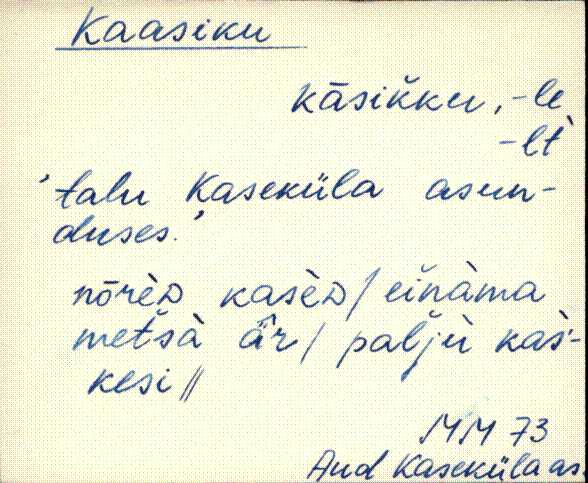 Kaasiku
kāsik̆ku, -le
-lt̀
'talu Kaseküla asun-
duses.'
nōrèᴅ kasèᴅ / eiǹàma
met̆sà ä̂r / pal̆jù kas̀-
kesi //
MM 73
Aud Kaseküla as.